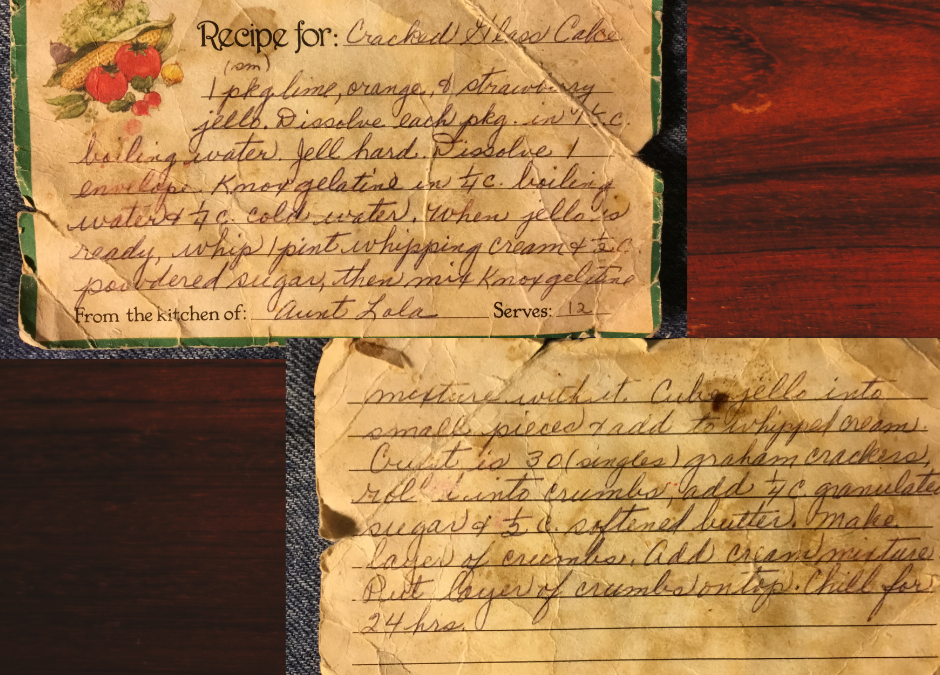 Recipe for: Cracked Glass Cake
(sm)
1 pkg lime, orange, & strawberry
jello. Dissolve each pkg. in 1½ c.
boiling water. Jell hard. Dissolve 1
envelope Knox gelatine in ¼ c. boiling
water & ¼ c. cold water. When jello is
ready, whip 1 pint whipping cream & ½ c.
powdered sugar, then mix Knox gelatine
From the kitchen of: Aunt Lola Serves: 12
mixture with it. Cube jello into
small pieces & add to whipped cream.
Crust is 30 (singles) graham crackers,
rolled into crumbs, add ¼ c. granulated
sugar & ½ c. softened butter. Make
layer of crumbs. Add cream mixture
Put layer of crumbs on top. Chill for
24 hrs.